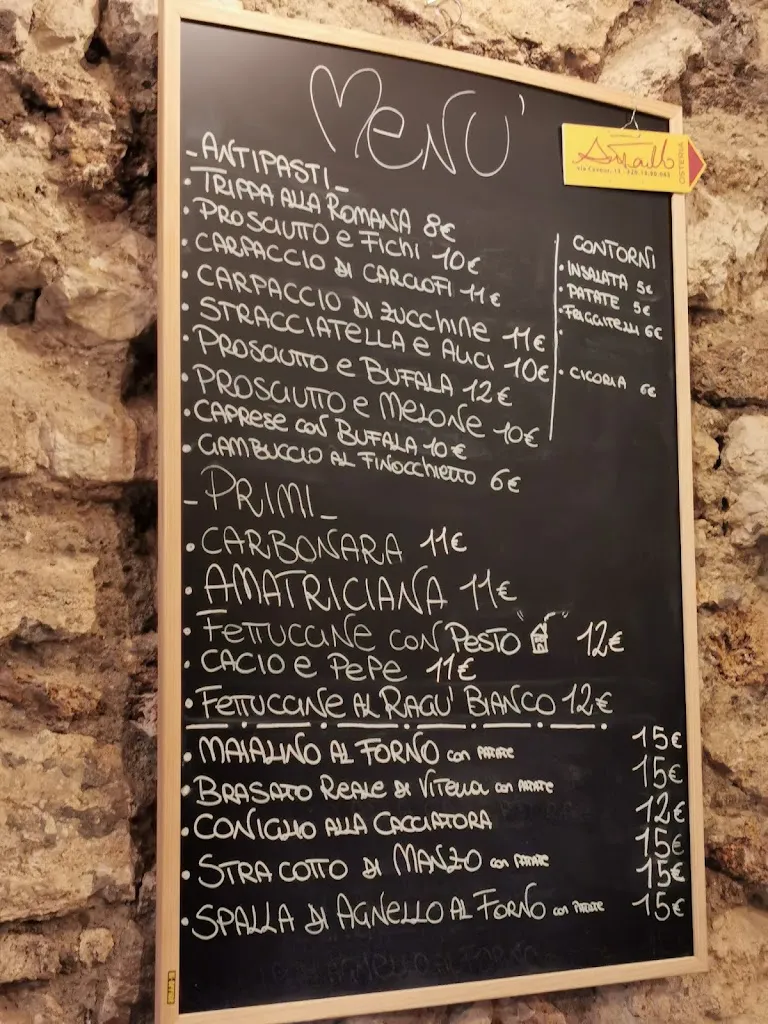 MENU'
- ANTIPASTI -
• TRIPPA ALLA ROMANA 8€
• PROSCIUTTO e FICHI 10€
• CARPACCIO DI CARCIOFI 11€
• CARPACCIO DI ZUCCHINE 11€
• STRACCIATELLA e ALICI 10€
• PROSCIUTTO e BUFALA 12€
• PROSCIUTTO e MELONE 10€
• CAPRESE con BUFALA 10€
• GAMBUCCIO AL FINOCCHIETTO 6€
OSTERIA
Via Cavour
CONTORNI
• INSALATA 5€
• PATATE 5€
• FRIGGITELLI 6€
•
• CICORIA 6€
- PRIMI -
• CARBONARA 11€
• AMATRICIANA 11€
• FETTUCCINE CON PESTO " " 12€
• CACIO e PEPE 11€
• FETTUCCINE AL RAGU' BIANCO 12€
• MAIALINO AL FORNO con PATATE 15€
• BRASATO REALE DI VITELLA con PATATE 15€
• CONIGLIO ALLA CACCIATORA 12€
• STRACOTTO DI MANZO con PATATE 15€
15€
• SPALLA DI AGNELLO AL FORNO con PATATE 15€